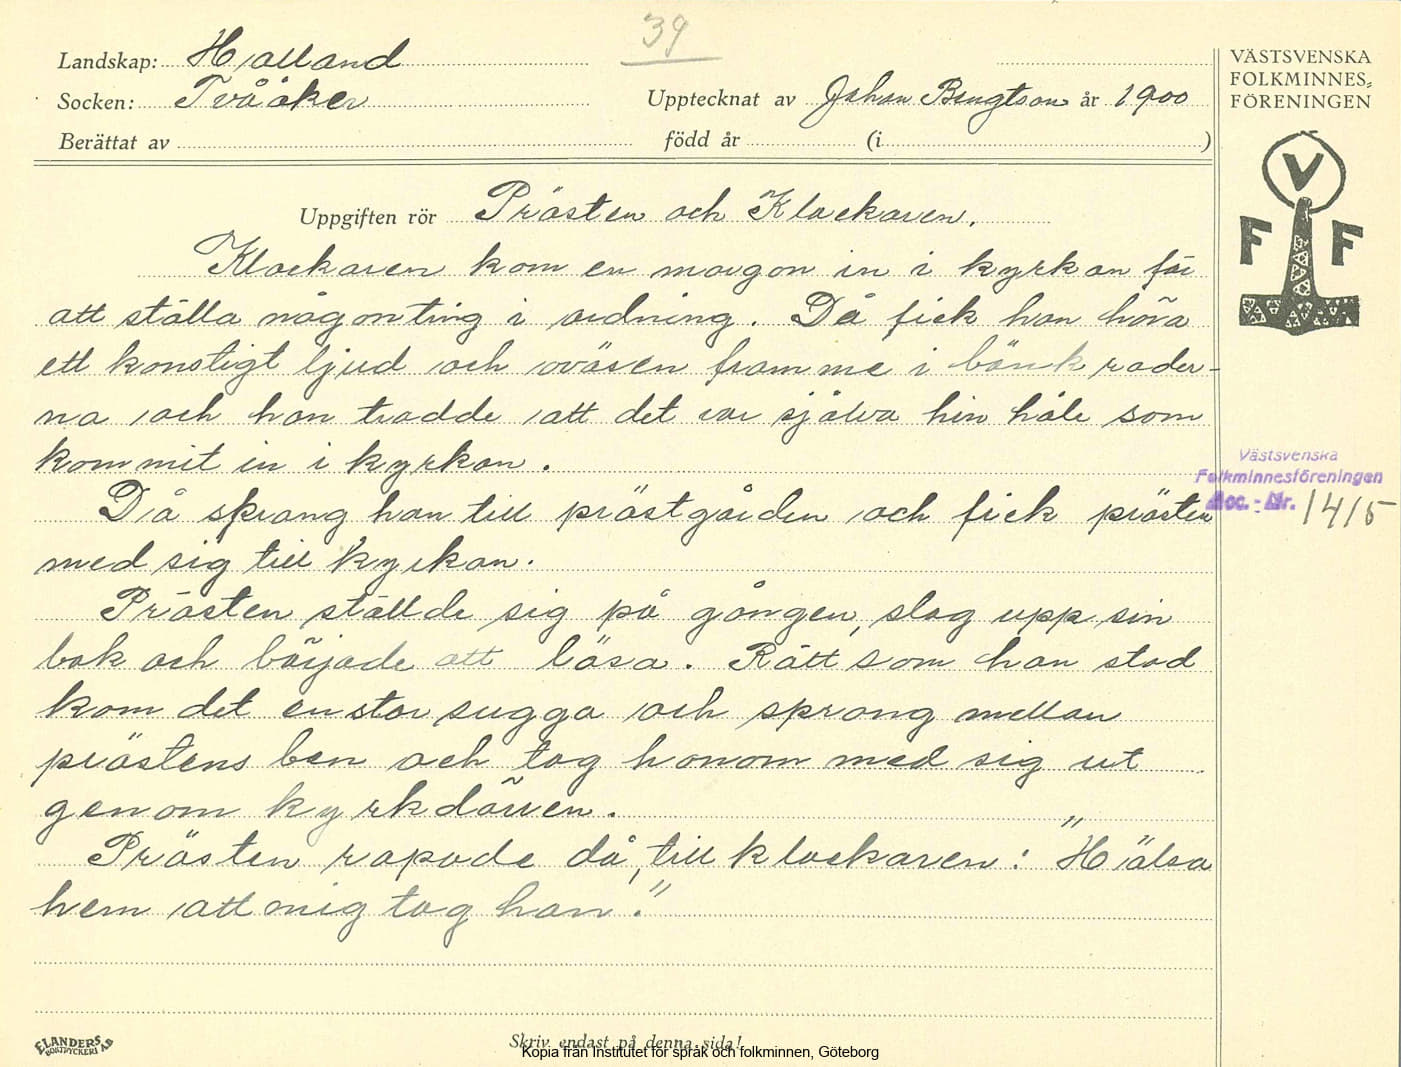 39
Landskap: Halland
Socken: Tvååker
Upptecknat av Johan Bengtson år 1900
Berättat av född år (i )
VÄSTSVENSKA
FOLKMINNES=
FÖRENINGEN
V
F F
Uppgiften rör Prästen och Klockaren.
Klockaren kom en morgon in i kyrkan för
att ställa någonting i ordning. Då fick han höra
ett konstigt ljud och oväsen framme i bänkrader-
na och han trodde att det var själva hin håle som
kommit in i kyrkan.
Västsvenska
Folkminnesföreningen
Acc. - Nr. 1415
Då sprang han till prästgården och fick prästen
med sig till kyrkan.
Prästen ställde sig på gången, slog upp sin
bok och började att läsa. Rätt som han stod
kom det en stor sugga och sprang mellan
prästens ben och tog honom med sig ut
genom kyrkdörren.
Prästen ropade då, till klockaren: "Hälsa
hem att mig tog han."
ELANDERS
BOKTRYCKERI AB
Skriv endast på denna sida!
Kopia från Institutet för språk och folkminnen, Göteborg